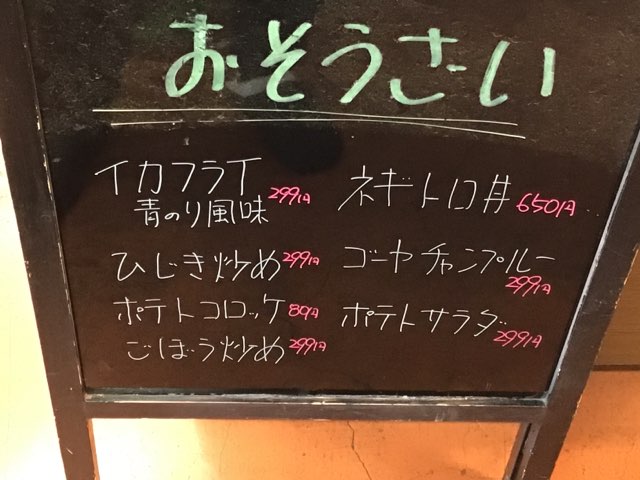 おそうさい
イカフライ
青のり風味 299円
ひじき炒め 299円
ポテトコロッケ 80円
ごぼう炒め 299円
ネギトロ丼 650円
ゴーヤチャンプルー
299円
ポテトサラダ
299円